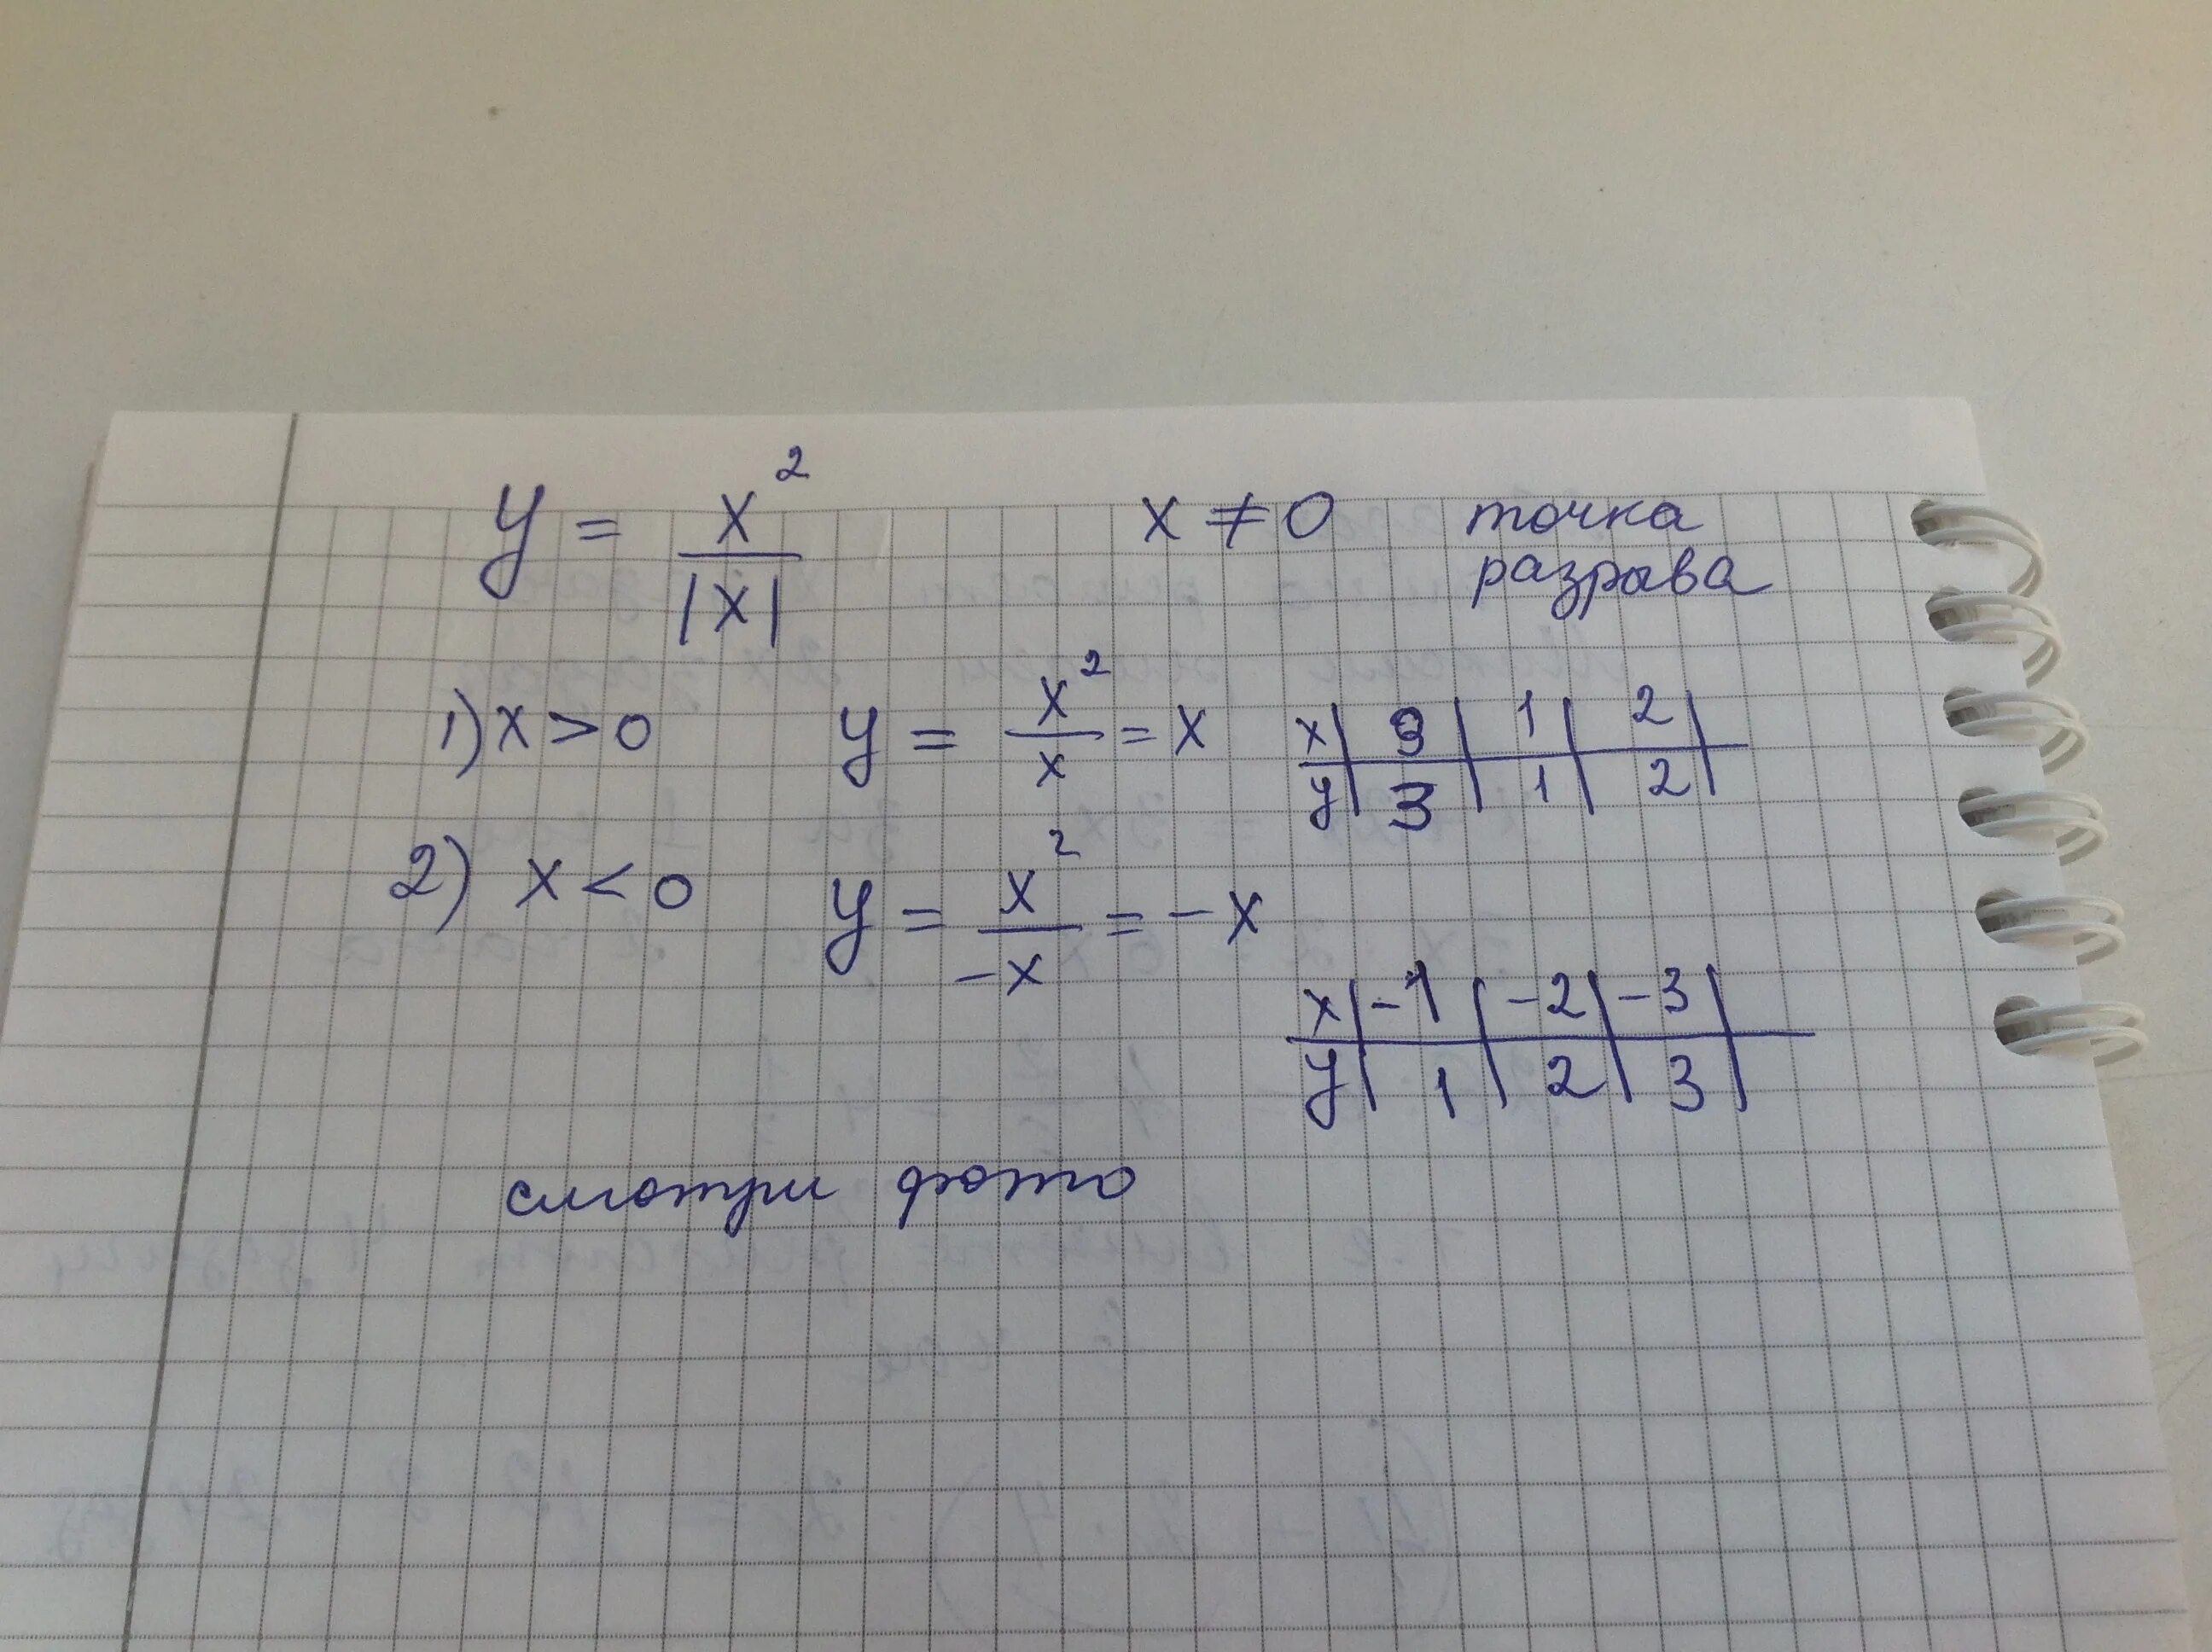 y = x² / |x| x ≠ 0 точка
разрыва
1) x > 0 y = x² / x = x
x | 3 | 1 | 2 |
y | 3 | 1 | 2 |
2) x < 0 y = x² / -x = -x
x | -1 | -2 | -3 |
y | 1 | 2 | 3 |
смотри фото